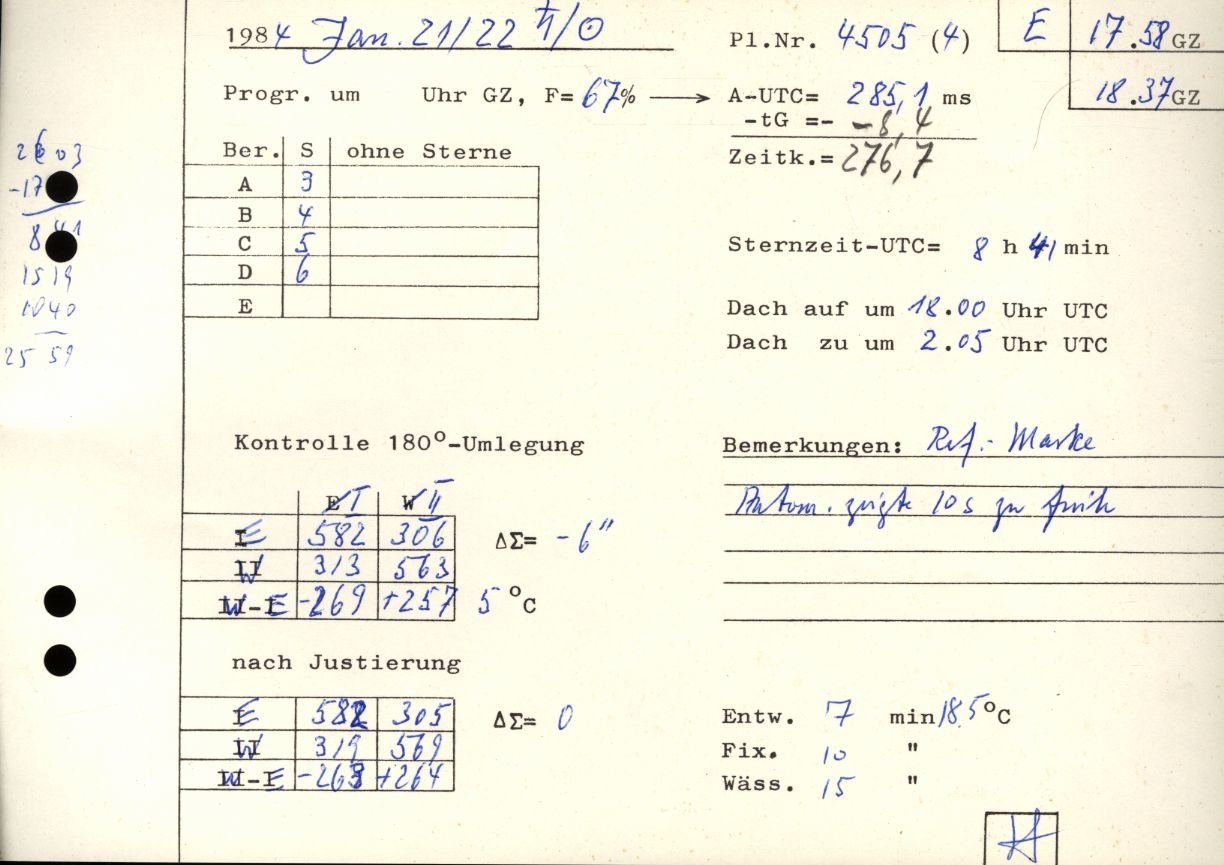 1984 Jan. 21/22 ♄/☉ Pl.Nr. 4505 (4) E 17.58 GZ
18.37 GZ
Progr. um Uhr GZ, F= 67% → A-UTC= 285,1 ms
-tG =- -8,4
Zeitk.= 276,7
Ber. S ohne Sterne
A 3
B 4
C 5
D 6
E
-17
8 41
1519
1040
25 59
Sternzeit-UTC= 8 h 41 min
Dach auf um 18.00 Uhr UTC
Dach zu um 2.05 Uhr UTC
Kontrolle 180°-Umlegung
E I W II
I E 582 306 ΔΣ= -6"
II W 313 563
II-I W-E -269 +257 5 °C
nach Justierung
I E 582 305 ΔΣ= 0
II W 319 569
II-I W-E -263 +264
Bemerkungen: Ref.- Marke
Autom. zeigte 10s zu früh
Entw. 7 min 18,5°C
Fix. 10 "
Wäss. 15 "